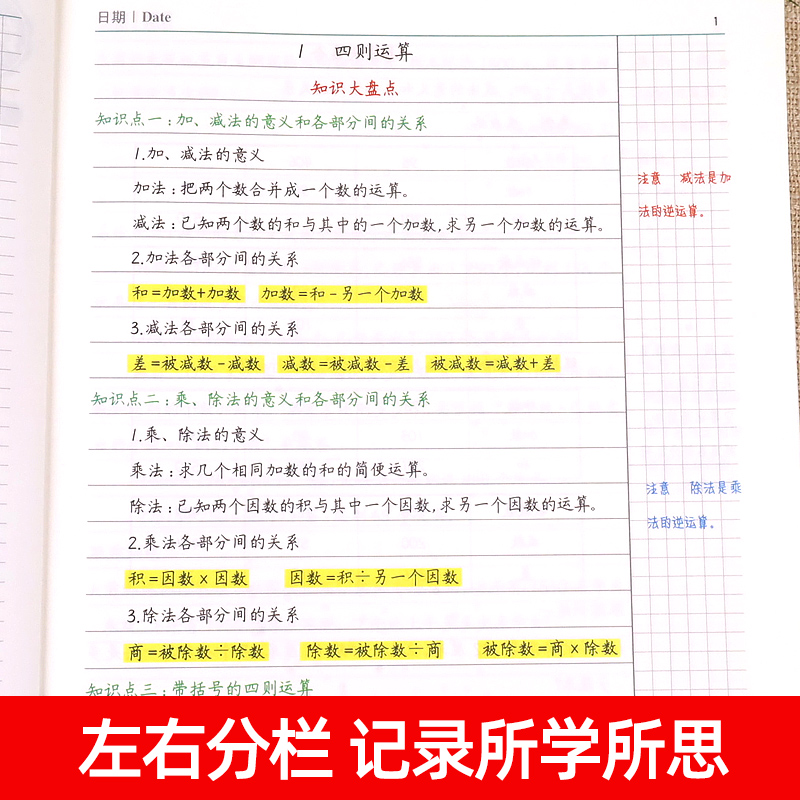 日期 | Date
1
1 四则运算
知识大盘点
知识点一:加、减法的意义和各部分间的关系
1.加、减法的意义
加法:把两个数合并成一个数的运算。
减法:已知两个数的和与其中的一个加数,求另一个加数的运算。
注意 减法是加
法的逆运算。
2.加法各部分间的关系
和=加数+加数 加数=和-另一个加数
3.减法各部分间的关系
差=被减数-减数 减数=被减数-差 被减数=减数+差
知识点二:乘、除法的意义和各部分间的关系
1.乘、除法的意义
乘法:求几个相同加数的和的简便运算。
除法:已知两个因数的积与其中一个因数,求另一个因数的运算。
注意 除法是乘
法的逆运算。
2.乘法各部分间的关系
积=因数×因数 因数=积÷另一个因数
3.除法各部分间的关系
商=被除数÷除数 除数=被除数÷商 被除数=商×除数
知识点三:带括号的四则运算
左右分栏 记录所学所思